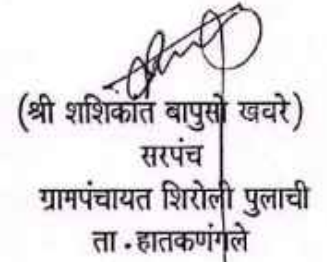 (श्री शशिकांत बापुसो खवरे)
सरपंच
ग्रामपंचायत शिरोली पुलाची
ता.हातकणंगले